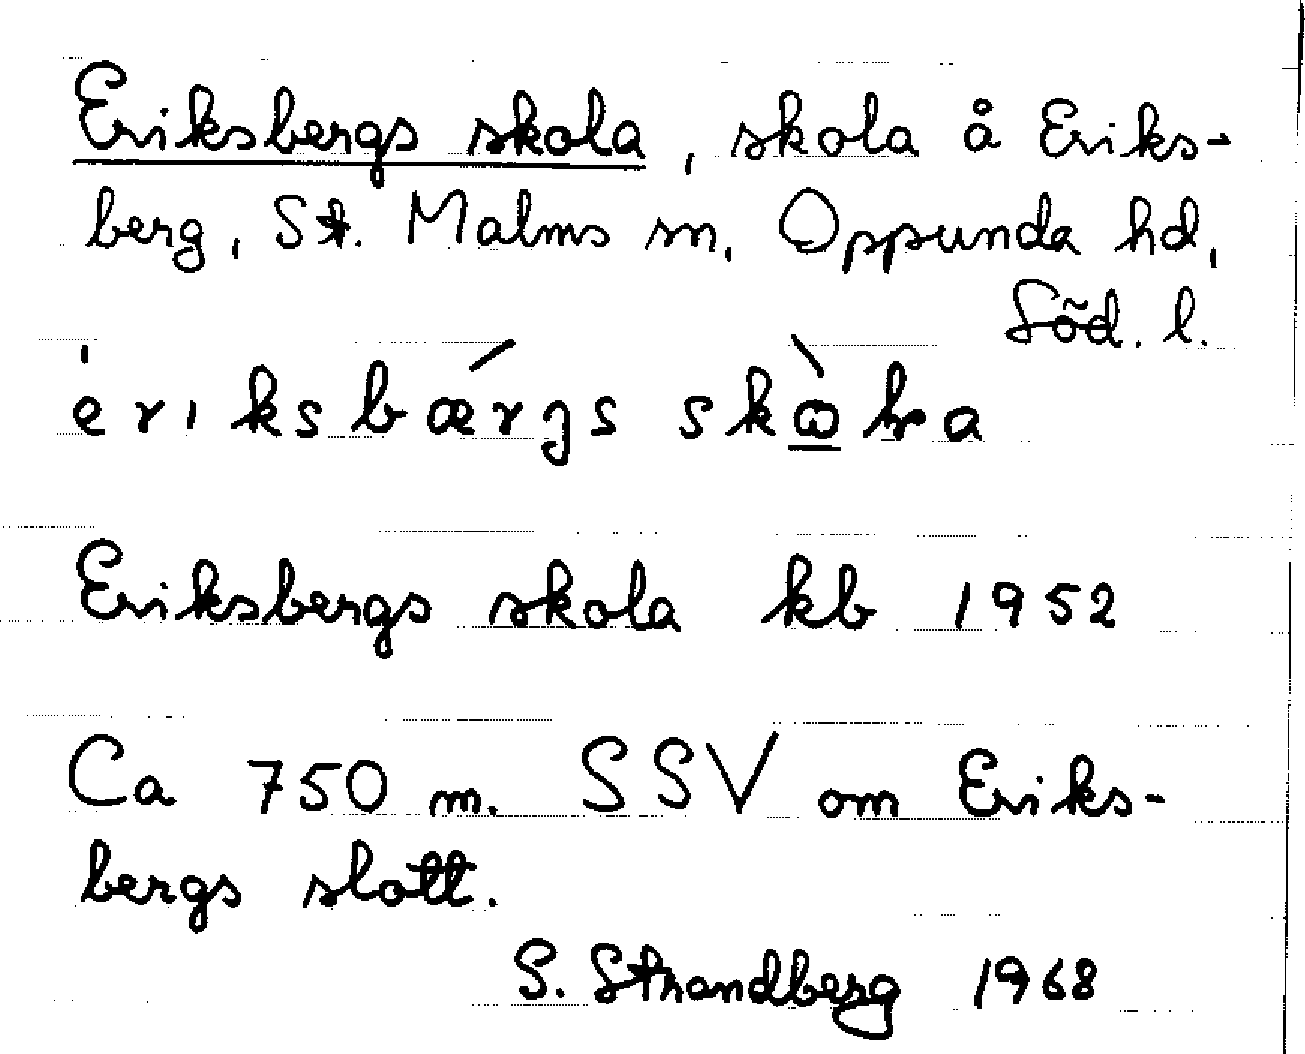 Eriksbergs skola, skola å Eriks-
berg, St. Malms sn, Oppunda hd,
Söd. l.
ériksbǽrgs
Eriksbergs skola kb 1952
Ca 750 m. SSV om Eriks-
bergs slott.
S. Strandberg 1968